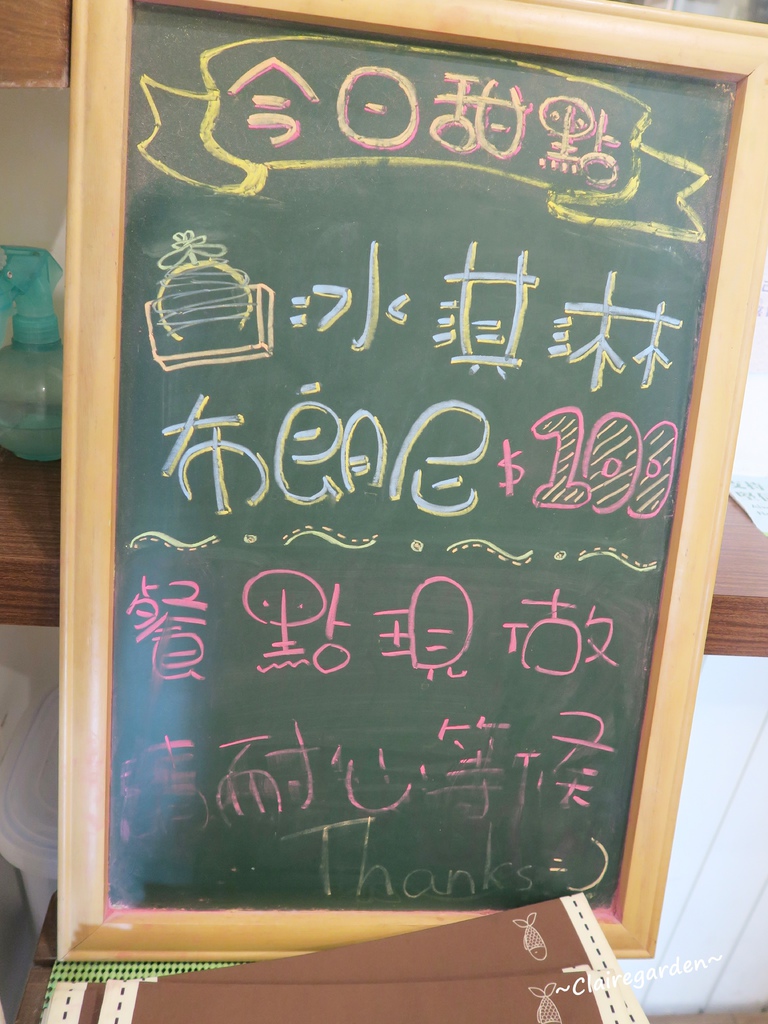 今日甜點
冰淇淋
布朗尼$100
餐點現做
請耐心等候
Thanks =)
~Clairegarden~